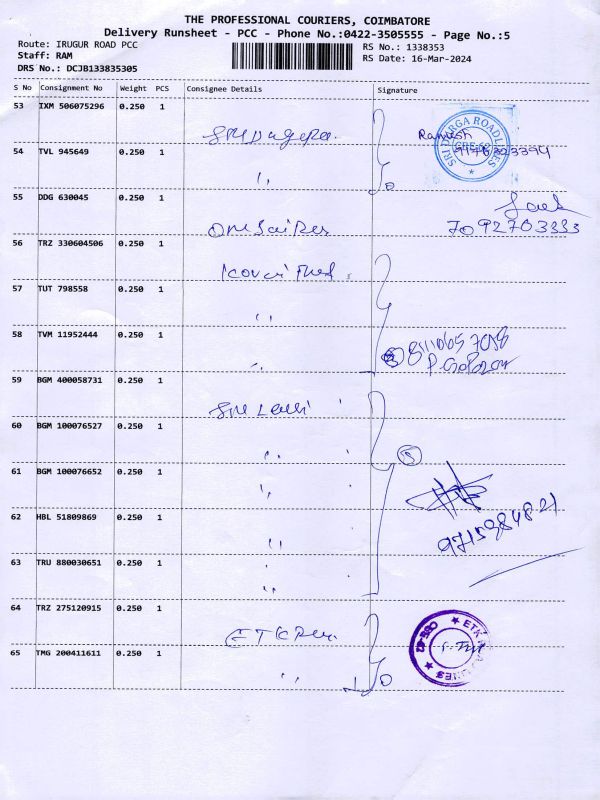 THE PROFESSIONAL COURIERS, COIMBATORE
Delivery Runsheet - PCC - Phone No.:0422-3505555 - Page No.:5
Route: IRUGUR ROAD PCC
RS No.: 1338353
Staff: RAM
RS Date: 16-Mar-2024
DRS No.: DCJB133835305
S No Consignment No Weight PCS Consignee Details Signature
53 IXM 506075296 0.250 1
Ramesh
SRI DURGA ROADLINES
54 TVL 945649 0.250 1 "
55 DDG 630045 0.250 1
7092703333
56 TRZ 330604506 0.250 1
57 TUT 798558 0.250 1 "
58 TVM 11952444 0.250 1 "
59 BGM 400058731 0.250 1
60 BGM 100076527 0.250 1 "
5
61 BGM 100076652 0.250 1 "
62 HBL 51809869 0.250 1 "
9715984821
63 TRU 880030651 0.250 1 "
64 TRZ 275120915 0.250 1
ETK
65 TMG 200411611 0.250 1 "